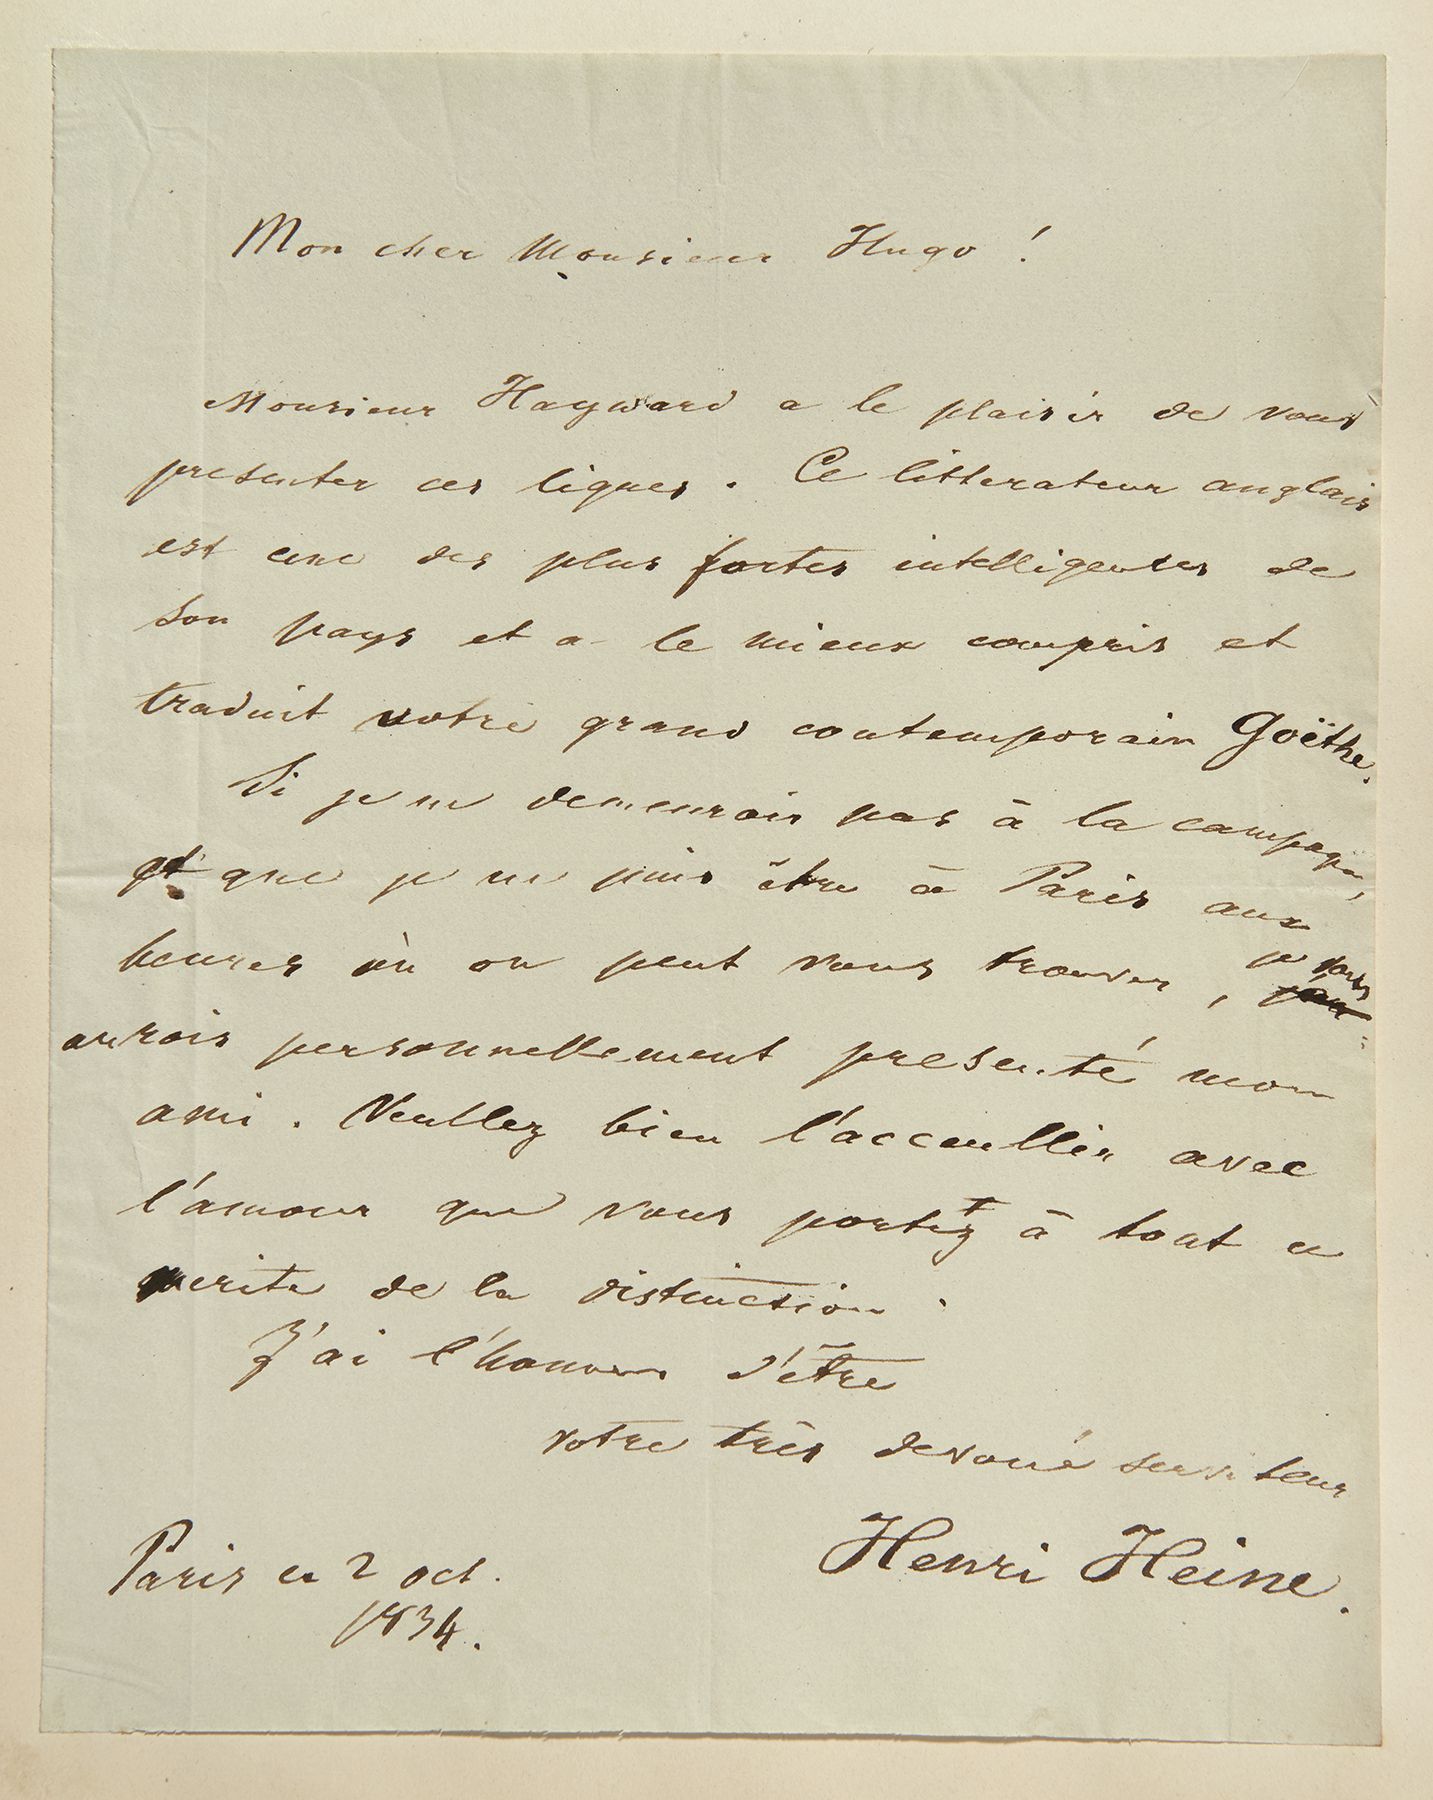 Mon cher Monsieur Hugo !
Monsieur Hayward a le plaisir de vous
presenter ces lignes. Ce litterateur anglais
est une des plus fortes intelligences de
son pays et a le mieux compris et
traduit votre grand contemporain Goëthe.
Si je ne demeurois pas à la campagne,
et que je ne puis être à Paris aux
heures où on peut vous trouver, je vous
aurois personnellement presenté mon
ami. Veullez bien l'acceullir avec
l'amour que vous portez à tout ce
merite de la distinction.
J'ai l'honneur d'être
votre très devoué serviteur
Henri Heine.
Paris ce 2 oct.
1834.